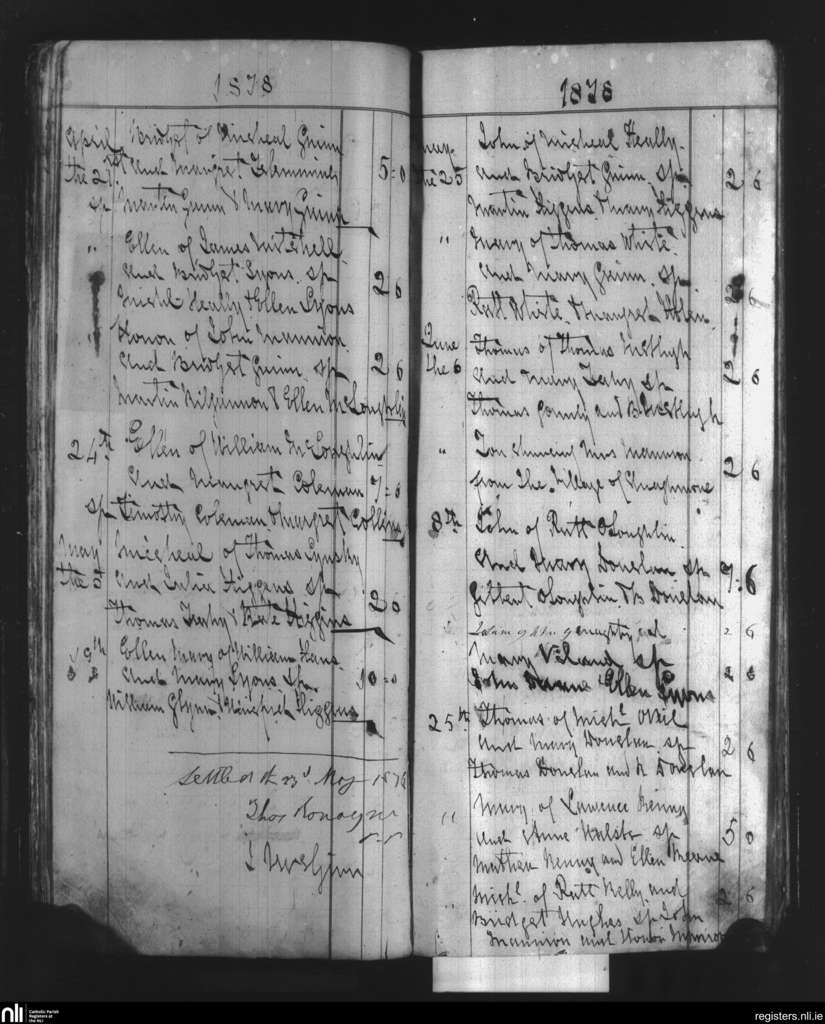 1878
April Bridget of Micheal Quinn
the 21st and Margret Flemming 5=0
sp Martin Quinn & Mary Quinn
" Ellen of James Mitchell
And Bridget Lyons sp 2 6
Michl Heally & Ellen Lyons
Honor of John Mannion
And Bridget Quinn sp 2 6
Martin Kilgannon & Ellen McLoughlin
24th Ellen of William McLoughlin
And Margret Coleman 7=6
sp Timothy Coleman & Margret Collins
May Micheal of Thomas
the 5 And Julia Higgins sp 2 0
Thomas & Kate Higgins
19th Ellen Mary of William
And Mary Lyons sp 10=0
William Glynn & Winifred Higgins
Settled the 23d May 1878
Thos Ronayne
1878
May John of Micheal Heally
the 25 And Bridget Quinn sp 2 6
Martin Higgins & Mary Higgins
" Mary of Thomas White
And Mary Quinn sp 2 6
Patt White & Margret
June Thomas of Thomas
the 6 And Mary sp 2 6
Thomas and B
" For Mrs Mannion
from the Village of 2 6
8th John of Patt OLoughlin
And Mary Donelan sp 7=6
Gilbert OLoughlin & B Donelan
2 6
Mary sp
John & Ellen Lyons 2 6
25th Thomas of Michl
And Mary Donelan sp 2 6
Thomas Donelan and B Donelan
" Mary of Lawrence Kenny
And Anne Walsh sp 5 0
Mathew Kenny and Ellen
" Michl of Patt Kelly and 2 6
Bridget Hughes sp John
Mannion and Honor Mannion
nli
Catholic Parish
Registers at
the NLI
registers.nli.ie